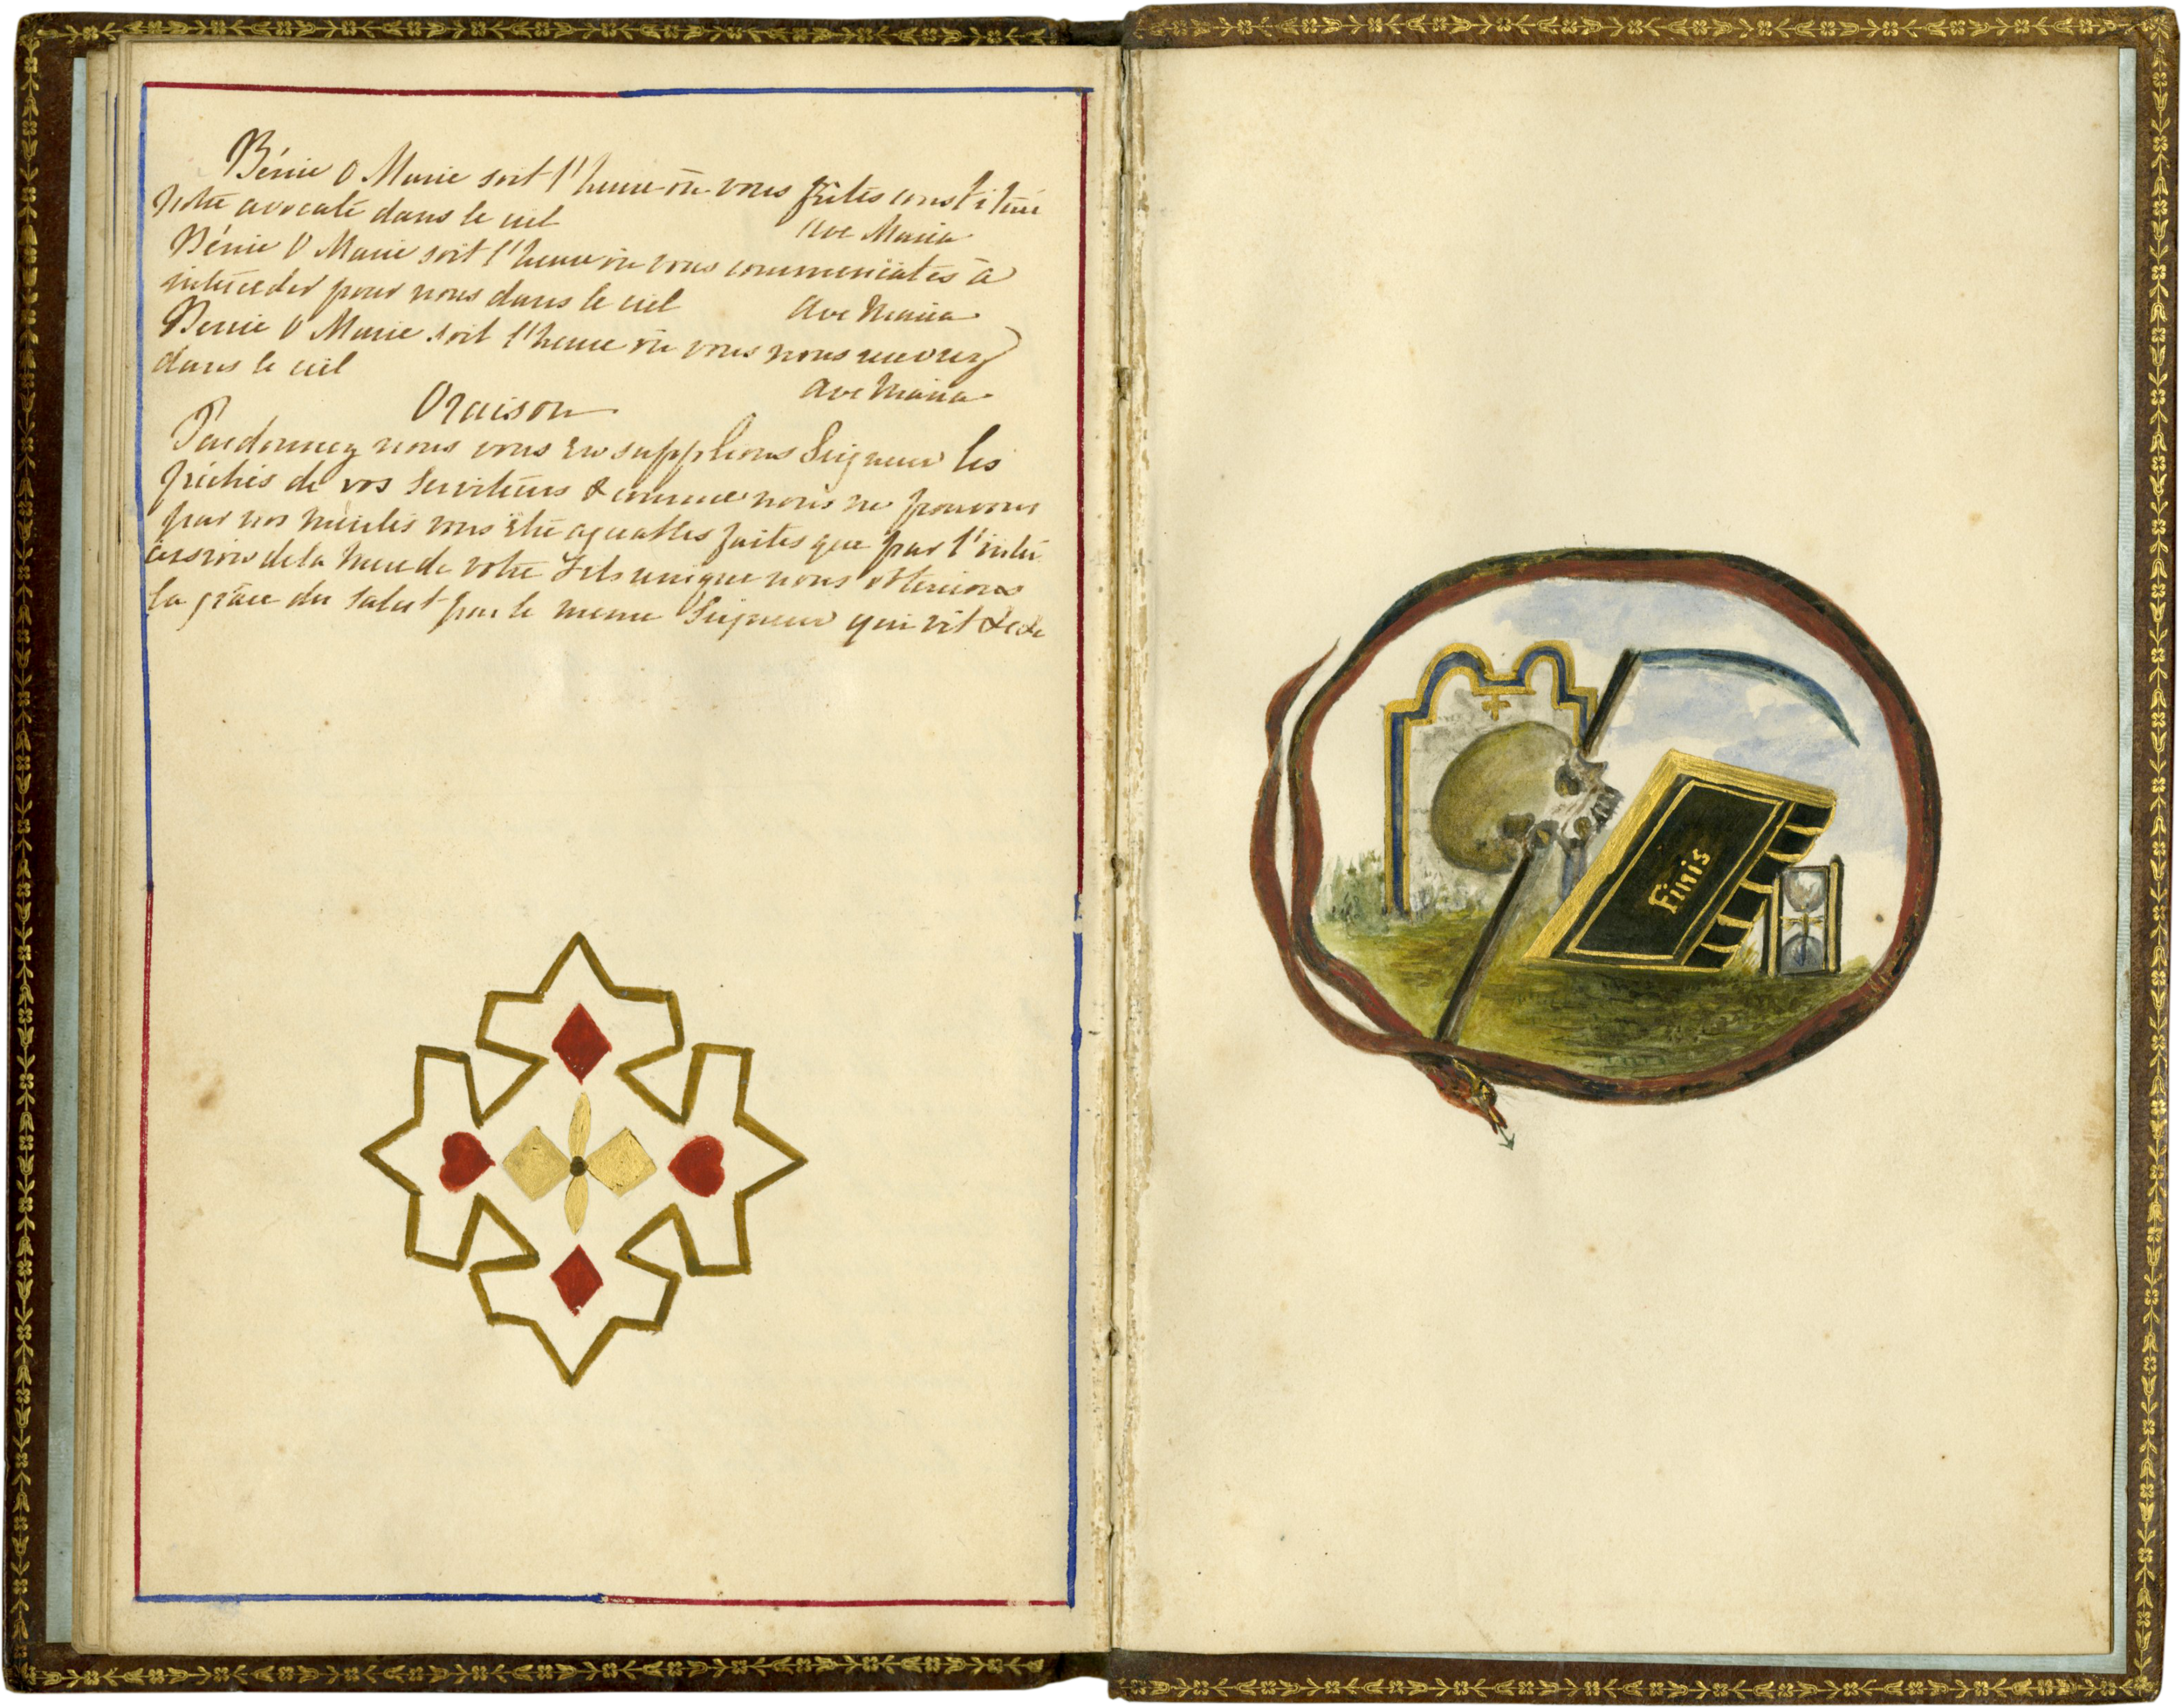 Bénie O Marie soit l'heure où vous fûtes constituée
notre avocate dans le ciel Ave Maria
Bénie O Marie soit l'heure où vous commenciates à
intercéder pour nous dans le ciel Ave Maria
Benie O Marie soit l'heure où vous nous recevrez
dans le ciel Ave Maria
Oraison
Pardonnez nous vous en supplions Seigneur les
péchés de vos Serviteurs & comme nous ne pouvons
par nos mérites vous être agréables faites que par l'inter
cession de la Mere de votre Fils unique nous obtenions
la grâce du Salut par le meme Seigneur qui vit &c&c
Finis